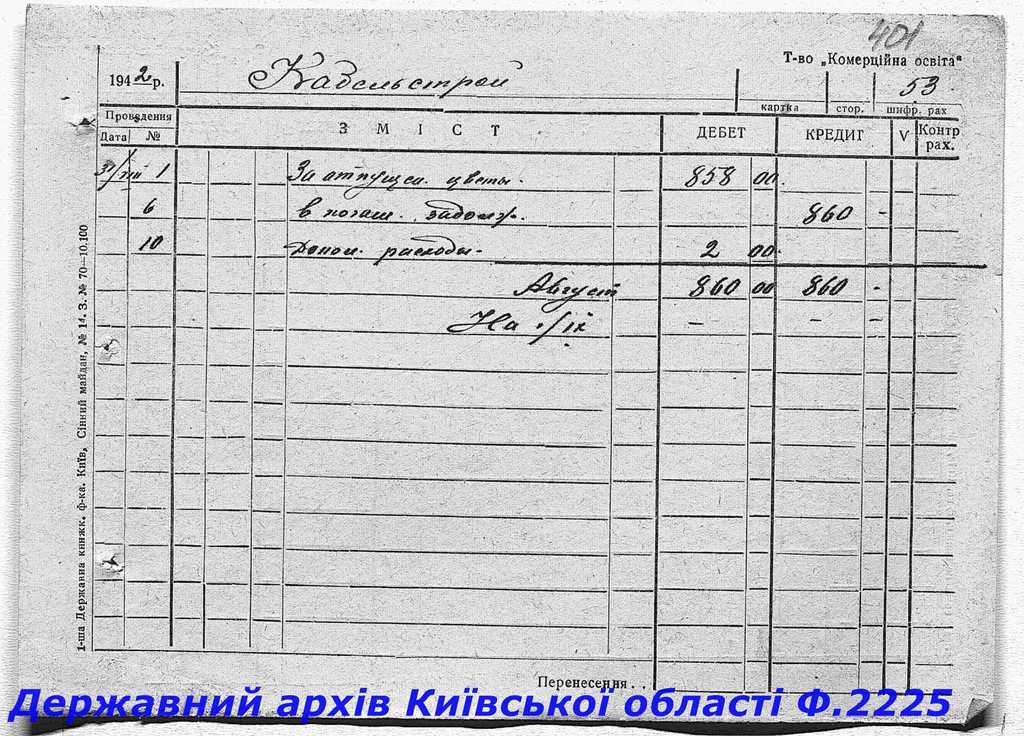 401
Т-во „Комерційна освіта“
1942 р. Кабельстрой 53
картка стор. шифр. рах
Проведення
Дата № ЗМІСТ ДЕБЕТ КРЕДИТ V Контр рах.
31/VIII 1 За отпущен. цветы. 858 00
6 в погаш. задолж. 860 -
10 Допол. расходы- 2 00
Август 860 00 860 -
На 1/IX - - -
Перенесення . .
1-ша Державна книжк. ф-ка. Київ, Сінний майдан, № 14. З. № 70—10.100
Державний архів Київської області Ф.2225